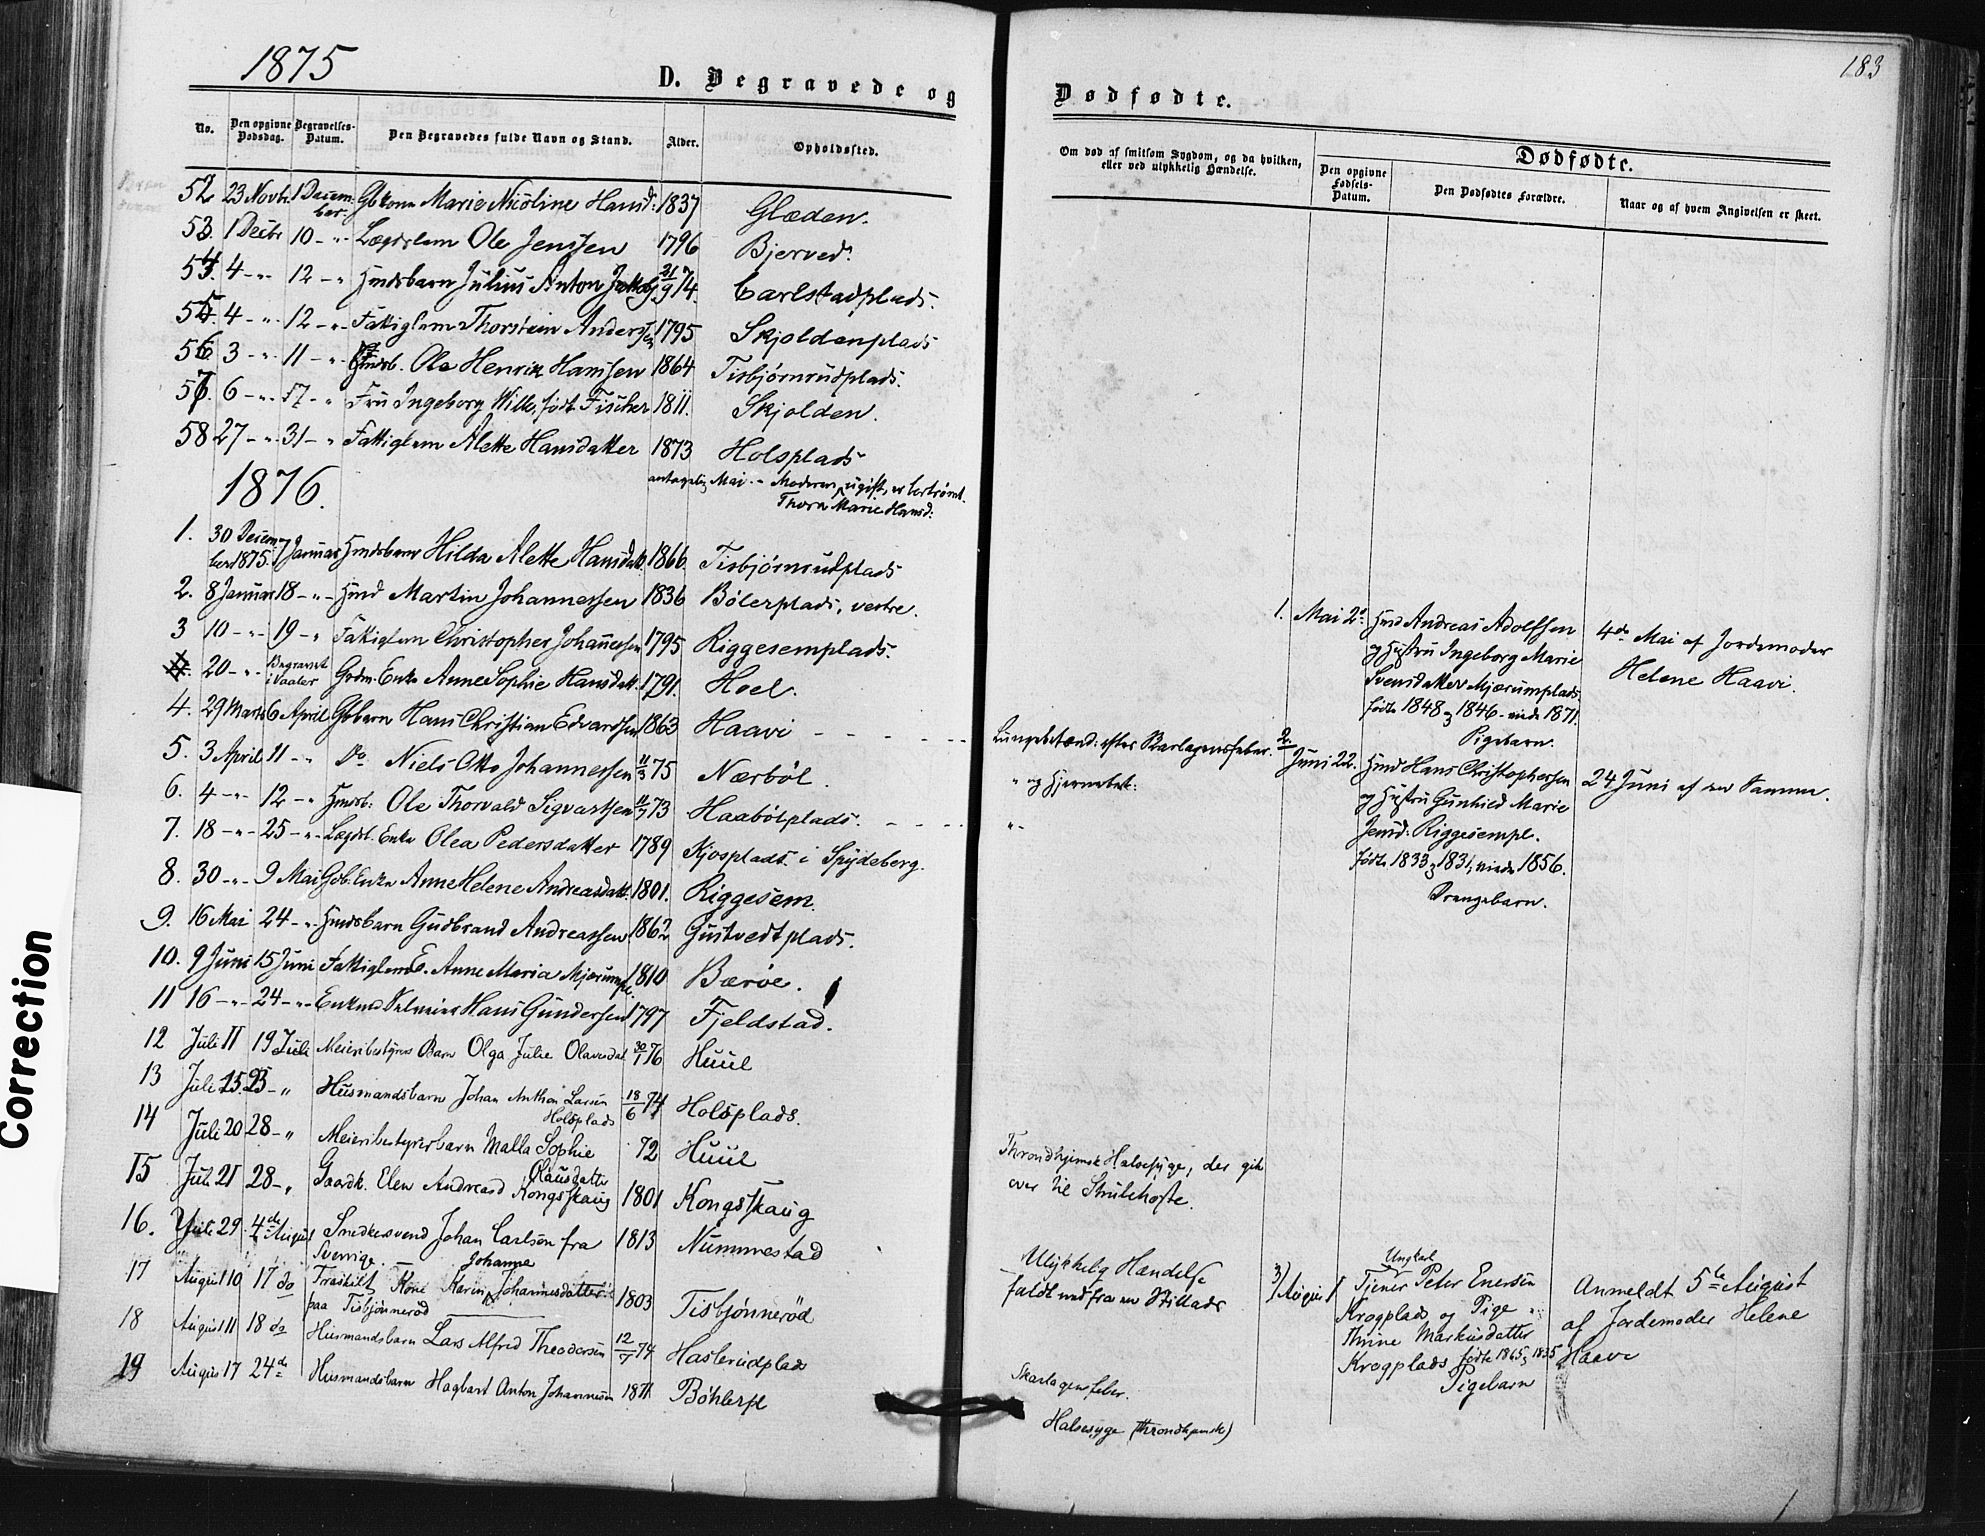 1875
D. Begravede og
No. Den opgivne Dødsdag. Begravelses-Datum. Den Begravedes fulde Navn og Stand. Alder. Opholdssted.
52 23 Novbr. 1 December Gbkone Marie Nicoline Hansd: 1837 Glæden.
53. 1 Decbr 10 - " - Lægdslem Ole Jenssen 1796 Bjerved.
54. 4 - " - 12 - " Husmdsbarn Julius Anton 21/9 74. Carlstadplads.
55. 4 - " - 12 - " - Fattiglem Thorstein Anderssen 1795 Skjoldenplads
56 3 - " - 11 - " Ole Henrik Hanssen 1864 Tisbjørnrudplads.
57. 6 - " - 17 - " Fru Ingeborg Wilk, født Fischer 1811. Skjolden.
58 27 - " - 31 - " Fattiglem Alette Hansdatter 1873 Holsplads
antagelig Mai. - Moderen, ugift, er bortrømt.
Thora Marie Hansd:
1876.
1. 30 December 1875. 7 Januar Hmdsbarn Hilda Alette Hansdatt. 1866. Tisbjørnrudplads
2. 8 Januar 18 - " - Hmd Martin Johannessen 1836 Bölerplads, vestre.
3 10 - " - 19 - " Fattiglem Christopher Johannessen 1795 Riggesemplads.
20 - " - Begravet i Vaaler Grdm. Enke Anne Sophie Hansdatt. 1791. Hoel.
4. 29 Marts 6 April Gbbarn Hans Christian Edvardsen 1863 Haavi - - - - -
5. 3 April 11 - " Do Niels Otto Johannessen 11/3 75 Nærböl.
6. 4 - " - 12 - " Hmdsb: Ole Thorvald Sigvartsen 11/7 73 Haabölplads. - - - -
7. 18 - " - 25 - " - Lægdsl. Enke Olea Pedersdatter 1789 Kjosplads i Spydeberg.
8. 30 - " - 9 Mai Gb. Enke Anne Helene Andreasdatt. 1801. Riggesem.
9. 16 Mai 24 - " - Hmdsbarn Gudbrand Andreassen 1862 Gustvedtplads.
10. 9 Juni 15 Juni Fattiglem E. Anne Maria Mjærumpl. 1810 Bærøe.
11 16 - " - 24 - " - Enkemd Hans Gundersen 1797 Fjeldstad.
12 Juli 11 19 Juli Meieribestyrers Barn Olga Julie Olausdat 30/1 76 Huul
13 Juli 15. 23 - " Husmandsbarn Johan Anthon Larsen Holsplads 18/6 74 Holsplads.
14 Juli 20 28 - " Meieribestyrerbarn Malla Sophie Olausdatter 72 Huul
15 Juli 21 28 - " Gaardk. Elen Andreasd Kongsskaug 1801 Kongsskaug
16. Juli 29 4de August Snedkersvend Johan Carlsøn fra Sverrige. 1813 Nummestad
17 August 10 17 do Fraskilt Kone Karin Johanne Johannesdatter paa Tisbjönneröd 1803 Tisbjönneröd
18 August 11 18 do Husmandsbarn Lars Alfred Theodorsen 12/7 74 Haslerudplads
19 August 17 24de Husmandsbarn Hagbart Anton Johannesen 1871 Böhlerpl
183
Dødfødte.
Om død af smitsom Sygdom, og da hvilken, eller ved ulykkelig Hændelse.
Dødfødte.
Den opgivne Fødsels-Datum. Den Dødfødtes Forældre. Naar og af hvem Angivelsen er skeet.
1. Mai 2. Hmd Andreas Adolfsen
og Hustru Ingeborg Marie
Svensdatter Mjærumplads
født 1848 & 1846 - viede 1871.
Pigebarn.
4de Mai af Jordemoder
Helene Haavi.
Lungebetænd: efter Skarlagensfeber.
" og Hjernebet:
" -
2. Juni 22. Hmd Hans Christophersen
og Hustru Gunhild Marie
Jensd: Riggesempl.
født 1833 & 1831, viede 1856.
Drengebarn.
24 Juni af den Samme.
Throndhjemsk Halssyge, der gik
over til Strubehoste.
Ulykkelig Hændelse
faldt ned fra en Stillads
3) August 1 Ungkarl
Tjener Peter Enersen
Krogplads og Pige
Thrine Markusdatter
Krogplads født 1865 & 1835
Pigebarn
Anmeldt 5te August
af Jordemoder Helene
Haavi
Skarlagensfeber.
Halssyge (throndhjemsk)
Correction